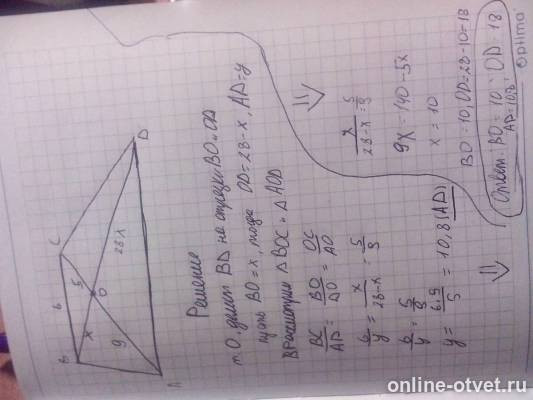 B 6 C
x 5
O
9 28-x
A D
Решение
т. О. делит BD на отрезки BO и OD
пусть BO = x, тогда OD = 28-x, AD = y
Рассмотрим △BOC и △AOD
BC/AD = BO/DO = OC/AO
6/y = x/28-x = 5/9
6/y = 5/9
y = 6·9/5 = 10,8 (AD)
⇓
x/28-x = 5/9
9x = 140 - 5x
x = 10
BO = 10, OD = 28-10 = 18
Ответ: BO = 10; OD = 18
AD = 10,8
Optima
online-otvet.ru